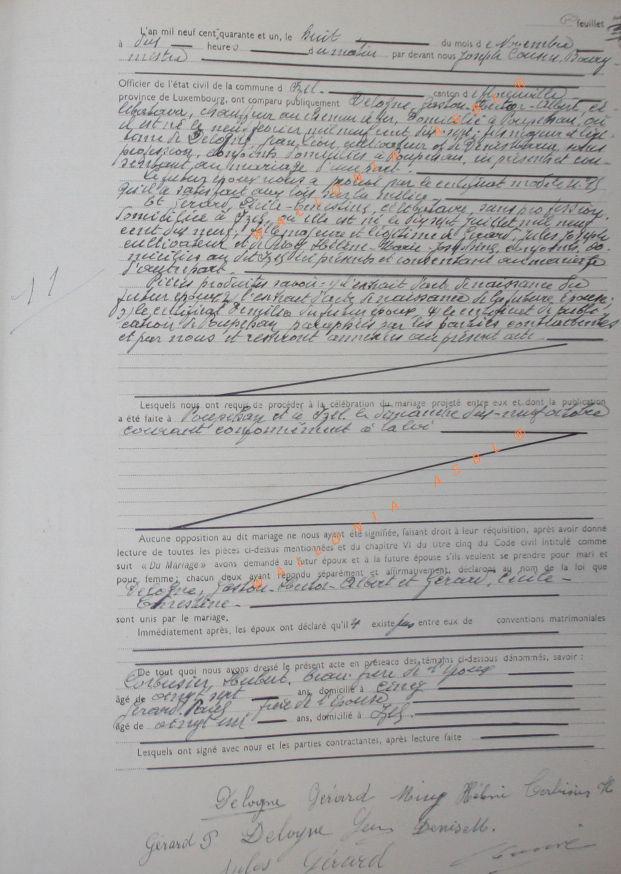 feuillet
L'an mil neuf cent quarante et un, le huit du mois de Novembre
à dix heures du matin par devant nous Joseph Bourg-
mestre
Officier de l'état civil de la commune d Izel canton d
province de Luxembourg, ont comparu publiquement Delogne, Gaston-Hector-Albert, cé-
libataire, chauffeur au chemin de fer, domicilié à Poupehan, où
il est né le neuf mil neuf cent dix sept, fils majeur et légi-
time de Delogne, cultivateur et de Denis sans
profession, conjoints domiciliés à Poupehan, ici présents et con-
sentant au mariage d'une part.
Le futur époux nous a prouvé par le certificat modèle n° 25
qu'il a satisfait aux lois sur la milice.
Et Gérard, Cécile-Ernestine, célibataire, sans profession,
domiciliée à Izel, où elle est née le juillet mil neuf
cent dix neuf, fille majeure et légitime de Gérard, Jules Joseph
cultivateur et de Hélène-Marie- conjoints do-
miciliés au dit Izel ici présents et consentant au mariage
d'autre part.
Pièces produites savoir: 1) l'extrait d'acte de naissance du
futur époux; 2) l'extrait d'acte de naissance de la future épouse;
3) le certificat de milice du futur époux, 4) le certificat de publi-
cation de Poupehan, paraphés par les parties contractantes
et par nous et resteront annexées au présent acte.
11
Lesquels nous ont requis de procéder à la célébration du mariage projeté entre eux et dont la publication
a été faite à Poupehan et à Izel le dimanche dix-neuf octobre
courant conformément à la loi
Aucune opposition au dit mariage ne nous ayant été signifiée, faisant droit à leur réquisition, après avoir donné
lecture de toutes les pièces ci-dessus mentionnées et du chapitre VI du titre cinq du Code civil intitulé comme
suit « Du Mariage » avons demandé au futur époux et à la future épouse s'ils veulent se prendre pour mari et
pour femme; chacun d'eux ayant répondu séparément et affirmativement, déclarons au nom de la loi que
Delogne, Gaston-Hector-Albert et Gérard, Cécile-
Ernestine-
sont unis par le mariage.
Immédiatement après, les époux ont déclaré qu'il n'existe pas entre eux de conventions matrimoniales
De tout quoi nous avons dressé le présent acte en présence des témoins ci-dessous dénommés, savoir :
Corbusier, Hubert, beau frère de l'époux
âgé de vingt sept ans, domicilié à
Gérard, frère de l'épouse
âgé de vingt ans, domicilié à Izel
Lesquels ont signé avec nous et les parties contractantes, après lecture faite
Delogne Gérard Hélène Corbusier H
Gérard P Delogne Denise M.
Jules Gérard
WALLONIA ASBL ®
WALLONIA ASBL ®